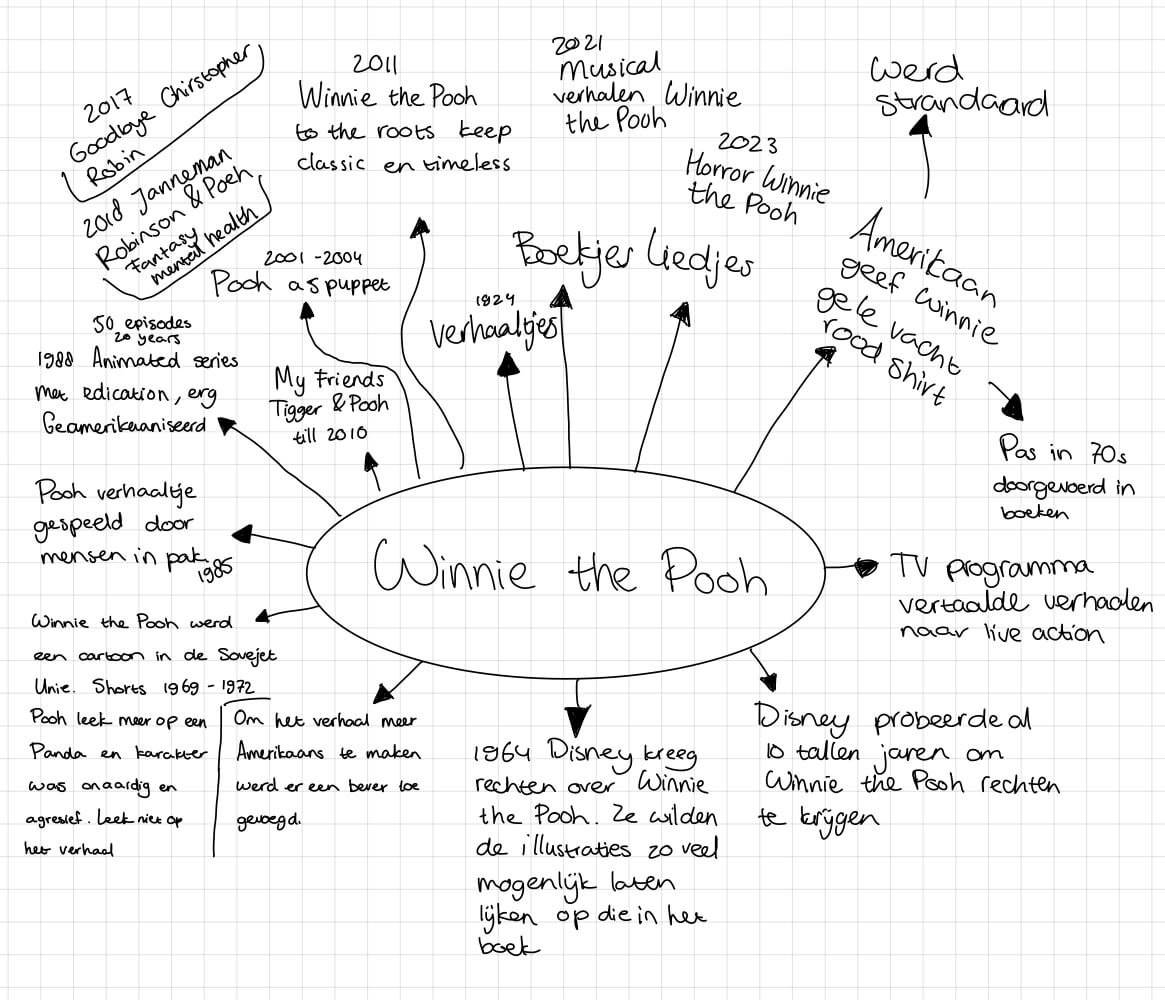 2017
Goodbye Chirstopher
Robin
2018 Janneman
Robinson & Poeh
Fantasy
mental health
2011
Winnie the Pooh
to the roots keep
classic en timeless
2021
Musical
verhalen Winnie
the Pooh
2023
Horror Winnie
the Pooh
Werd
strandaard
Amerikaan
geef Winnie
gele vacht
rood shirt
Pas in 70s
doorgevoerd in
boeken
2001 - 2004
Pooh as puppet
1924
verhaaltjes
Boekjes
Liedjes
50 episodes
20 years
1988 Animated series
met edication, erg
Geamerikaaniseerd
My Friends
Tigger & Pooh
till 2010
Pooh verhaaltje
gespeeld door
mensen in pak
1985
Winnie the Pooh
TV programma
vertaalde verhaalen
naar live action
Winnie the Pooh werd
een cartoon in de Sovejet
Unie. Shorts 1969 - 1972
Pooh leek meer op een
Panda en karakter
was onaardig en
agresief. Leek niet op
het verhaal
Om het verhaal meer
Amerikaans te maken
werd er een bever toe
gevoegd.
1964 Disney kreeg
rechten over Winnie
the Pooh. Ze wilden
de illustraties zo veel
mogenlijk laten
lijken op die in het
boek
Disney probeerde al
10 tallen jaren om
Winnie the Pooh rechten
te krijgen